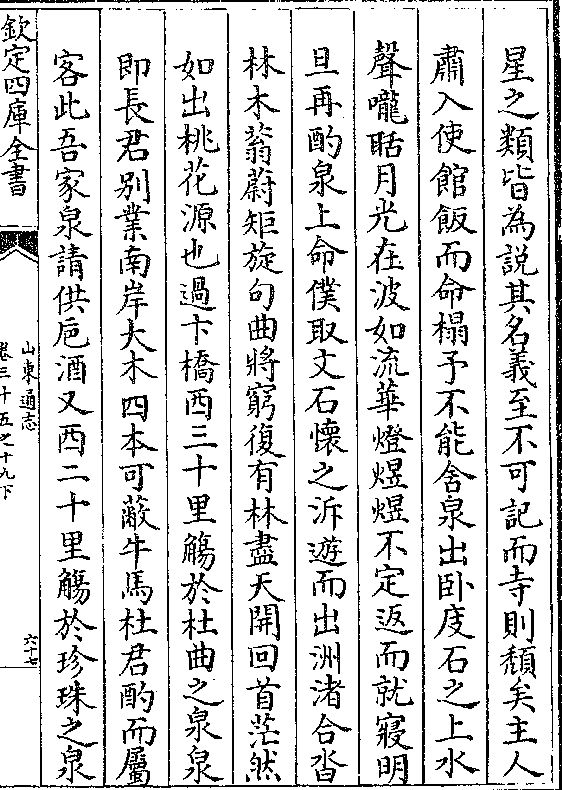 星之類皆為說其名義至不可記而寺則頽矣主人
肅入使館飯而命榻予不能舍泉出卧庋石之上水
聲嚨聒月光在波如流華燈煜煜不定返而就寢明
旦再酌泉上命僕取文石懷之泝遊而出洲渚合沓
林木蓊蔚矩旋句曲將窮復有林盡天開回首茫然
如出桃花源也過卞橋西三十里觴於杜曲之泉泉
即長君别業南岸大木四本可蔽牛馬杜君酌而屬
客此吾家泉請供巵酒又西二十里觴於珍珠之泉
欽定四庫全書
山東通志
卷三十五之十九下
六十七